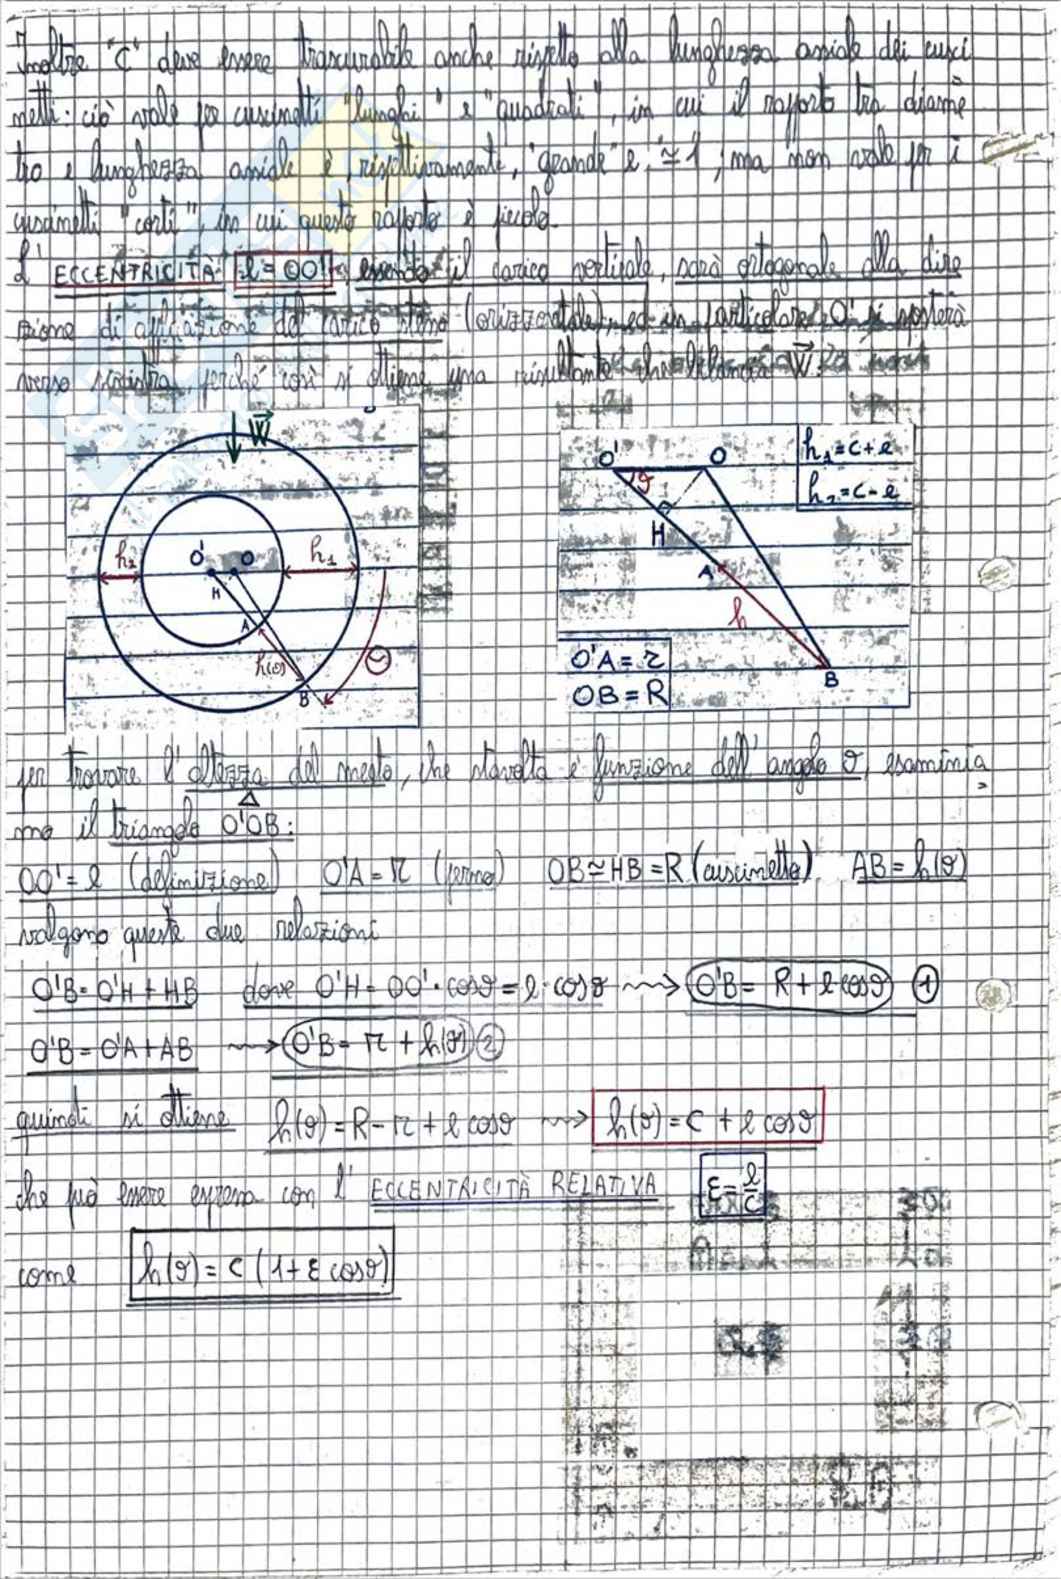 Inoltre "C" deve essere trascurabile anche rispetto alla lunghezza assiale dei cusci
netti: ciò vale per cuscinetti "lunghi" e "quadrati", in cui il rapporto tra diame
tro e lunghezza assiale è, rispettivamente, "grande" e ≃ 1; ma non vale per i
cuscinetti "corti", in cui questo rapporto è piccolo.
L'ECCENTRICITÀ e = OO', essendo il carico verticale, sarà ortogonale alla dire
zione di applicazione del carico stesso (orizzontale), ed in particolare O' si sposterà
verso sinistra, perché così si ottiene una risultante che bilancia W⃗:
W⃗
O' O
h₂ h₁
H
A
h(Θ)
B
Θ
O' O
ϑ
H
A
h
B
h₁ = C + e
h₂ = C - e
O'A = r
OB = R
per trovare l'altezza del meato, che stavolta è funzione dell'angolo ϑ, esaminia
mo il triangolo O'OB:
OO' = e (definizione) O'A = r (perno) OB ≃ HB = R (cuscinetto) AB = h(ϑ)
valgono queste due relazioni
O'B = O'H + HB dove O'H = OO' · cosϑ = e · cosϑ ⟿ O'B = R + e cosϑ ①
O'B = O'A + AB ⟿ O'B = r + h(ϑ) ②
quindi si ottiene h(ϑ) = R - r + e cosϑ ⟿ h(ϑ) = C + e cosϑ
che può essere espressa con l'ECCENTRICITÀ RELATIVA ε = e/C
come h(ϑ) = C (1 + ε cosϑ)